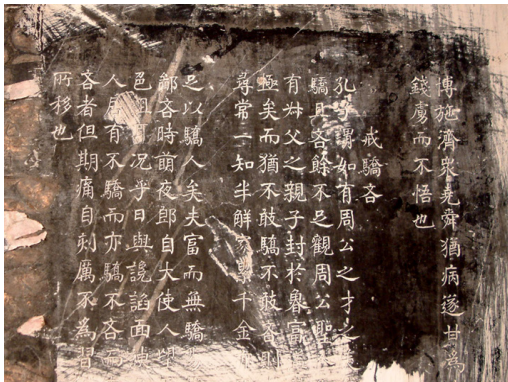 博施濟眾堯舜猶病遂甘為
錢虜而不悟也
戒驕吝
孔子謂如有周公之才之美
驕且吝餘不足觀周公聖
有叔父之親子封於魯富
極矣而猶不敢驕不敢吝則
尋常一知半解家累千金
足以驕人矣夫富而無驕
鄙吝時萌夜郎自大使人
邑可況乎日與讒諂面諛
人居有不驕而亦驕不吝而
吝者但期痛自刻厲不為習
所移也